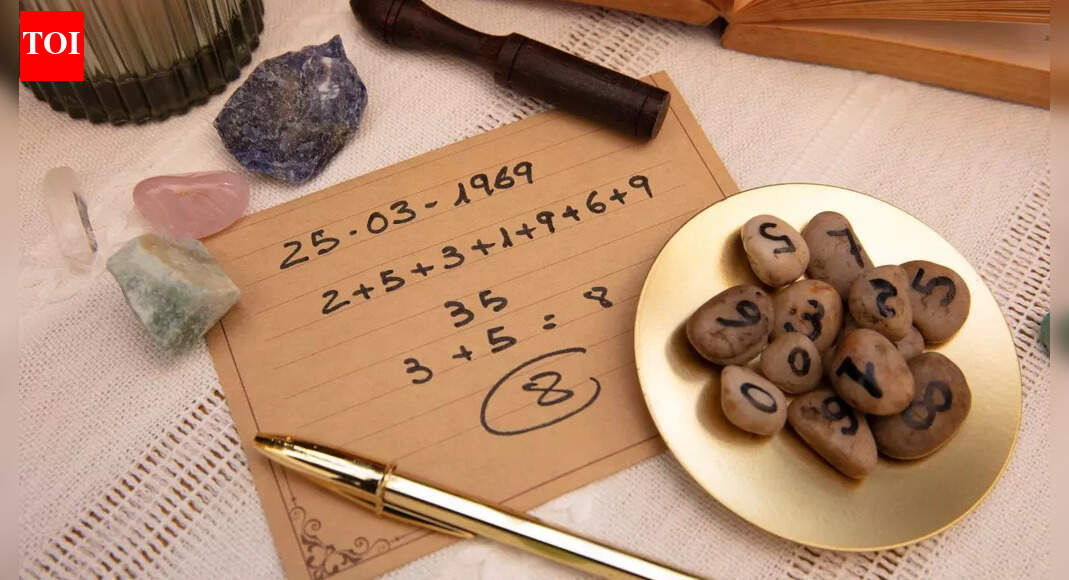 TOI
25.03-1969
2+5+3+1+9+6+9
35
3+5=8
8
5
1
5
2
6
3
0
1
8
0
9